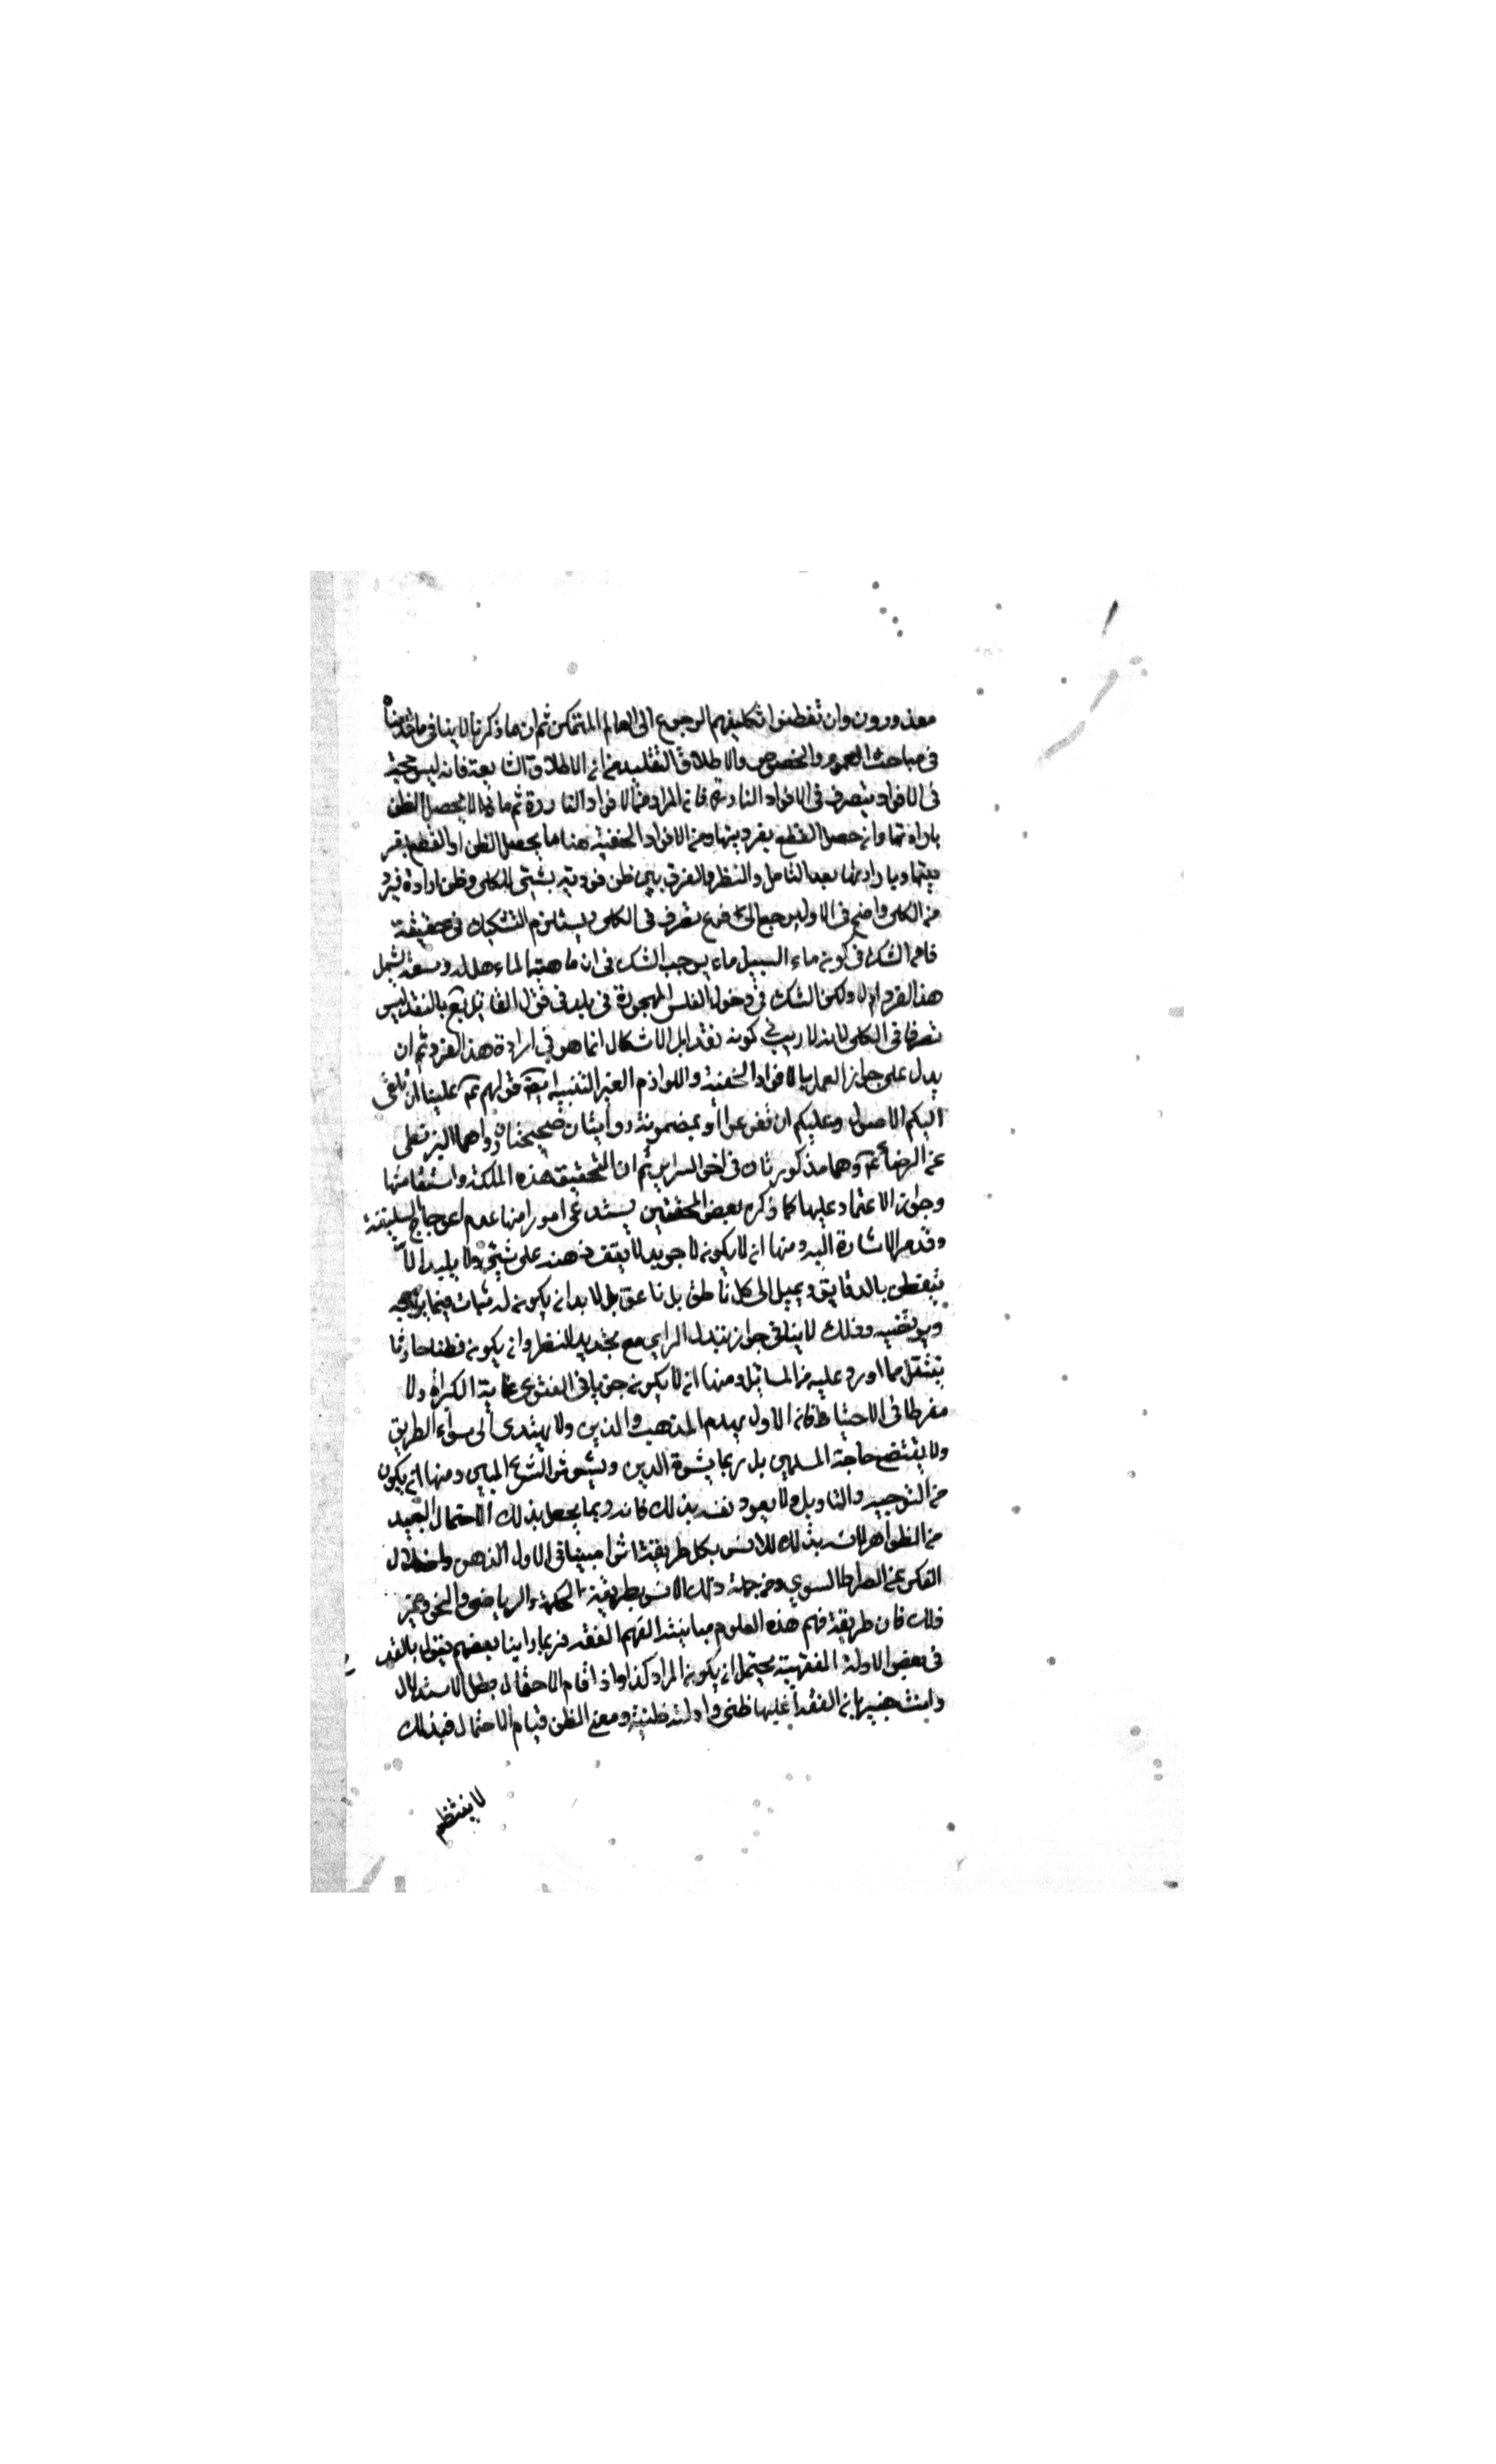 معذورون وان تفطنوا فتكليفهم الرجوع الى العالم المتمكن ثم ان ما ذكرنا لا ينافى ما قدمناه
فى مباحث العموم والخصوص والاطلاق والتقييد من ان الاطلاق الشايعة فانه ليس حجة
فى الافراد ينصرف فى الافراد النادرة فان المراد من الافراد النادرة ثم ما لا يحصل الظن
بارادتها وان حصل القطع بفرديتها ومن الافراد الخفية هنا ما يحصل الظن او القطع بفر
ديتها وبارادتها بعد التامل والنظر والفرق بين ظن فردية شيئ للكلى وظن ارادة فرد
من الكلى واضح فى الاول يرجع الى تصرف فى الكلى ويستلزم التشكيك فى حقيقة
فان الشك فى كون ماء السيل ماء يوجب الشك فى ان ماهية الماء هل له وسعة يشمل
هذا الفرد ام لا ولكن الشك فى دخول الفلس المهجورة فى بلد فى قول القائل بع بالنقد ليس
تصرفا فى الكلى لانه لا ريب فى كونه نقدا بل الاشكال انما هو فى ارادة هذا الفرد ثم ان
يدل على جواز العمل بالافراد الخفية واللوازم الغير البينة قولهم ع علينا ان نلقى
اليكم الاصول وعليكم ان تفرعوا وبمضمونه روايتان صحيحتان رواهما البزنطى
عن الرضا ع وهما مذكورتان فى اخر السراير ثم ان التحقيق هذه الملكة واستقامتها
وجواز الاعتماد عليها كما ذكره بعض المحققين يستدعى امورا منها عدم اعوجاج السليقة
وقد مر الاشارة اليه ومنها ان لا يكون لا يقف ذهنه على شيئ ولا بليدا لا
يتفطن بالدقايق ويميل الى كل ناطق بل ناعق بل لا بد ان يكون له ثبات فيما يرجحه
ويرتضيه وذلك لا ينافى جواز تبدل الراى مع تجديد النظر وان يكون فطنا حاذقا
ينتقل مما اورد عليه من المسائل ومنها ان لا يكون جريا فى الفتوى غاية الجراة ولا
مفرطا فى الاحتياط فان الاول يهدم المذهب والدين ولا يهتدى الى سواء الطريق
ولا يقتضى حاجة المسلمين بل ربما يشوه الدين ويشوش الشرع المبين ومنها ان يكون
من التوجيه والتاويل ولا يعود نفسه بذلك فانه ربما يجعل بذلك الاحتمال البعيد
من الظواهر لانسه بذلك للانس بكل طريقة اثرا مبينا فى الاول الذهن واخلال
الفكر عن الصراط السوى ومن جملة ذلك الانس بطريقة الحكمة والرياضى والنحو وغير
ذلك فان طريقة فهم هذه العلوم مباينة لفهم الفقه فربما راينا بعضهم يقول بالفقه
فى بعض الادلة الفقهية يحتمل ان يكون المراد كذا واذا قام الاحتمال بطل الاستدلال
وانت خبير بان الفقه اغلبها ظنى وادلته ظنية ومعنى الظن قيام الاحتمال فبذلك
لا ينتظم